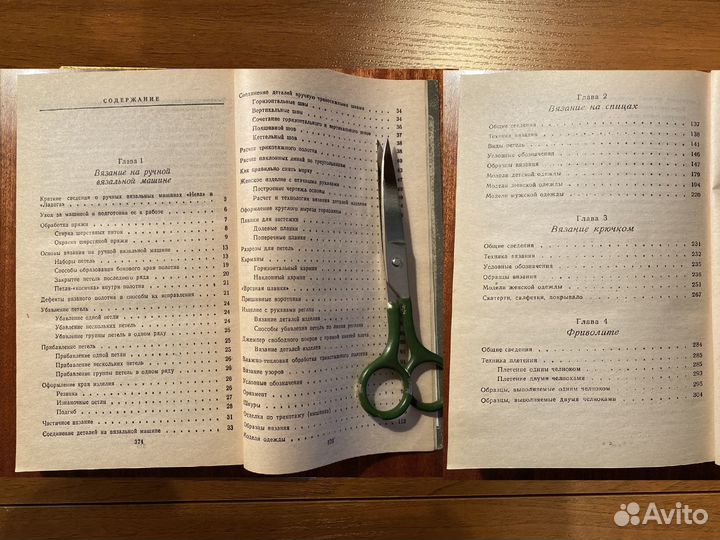 СОДЕРЖАНИЕ
Глава 1
Вязание на ручной
вязальной машине
Краткие сведения о ручных вязальных машинах «Нева» и
«Ладога» 3
Уход за машиной и подготовка ее к работе 5
Обработка пряжи 6
Стирка шерстяных ниток 9
Окраска шерстяной пряжи 10
Основы вязания на ручной вязальной машине 13
Наборы петель 13
Способы образования бокового края полотна 19
Закрытие петель последнего ряда 19
Петли-«косичка» внутри полотна 20
Дефекты вязаного полотна и способы их исправления 21
Убавление петель 21
Убавление одной петли 21
Убавление нескольких петель 22
Убавление группы петель в одном ряду 24
Прибавление петель 24
Прибавление одной петли 24
Прибавление нескольких петель 25
Прибавление группы петель в одном ряду 26
Оформление края изделия 26
Резинка 27
Изнаночные петли 27
Подгиб 31
Частичное вязание 31
Соединение деталей на вязальной машине 33
374
Соединение деталей вручную трикотажными швами
Горизонтальные швы 34
Вертикальные швы 34
Сочетание горизонтального и вертикального швов 36
Подшивной шов 36
Кеттельный шов 37
Расчет трикотажного полотна 38
Расчет наклонных линий по треугольникам
Как правильно снять мерку
Женское изделие с втачными рукавами
Построение чертежа основы
Расчет и технология вязания деталей изделия
Оформление круглого выреза горловины
Планки для застежки
Долевые планки
Поперечные планки
Разрезы для петель
Карманы
Горизонтальный карман
Наклонный карман
Пришивные воротники
Изделие с рукавами реглан
Вязание деталей изделия
Способы убавления петель по линии реглана
Джемпер свободного покроя с прямой линией плеча
Вязание деталей изделия
Влажно-тепловая обработка трикотажного полотна
Вязание узоров
Условные обозначения
Орнамент
Шнуры
Отделка по трикотажу (вышивка)
Образцы вязания
Модели одежды 113
Глава 2
Вязание на спицах
Общие сведения 137
Техника вязания 138
Виды петель 141
Условные обозначения 146
Образцы вязания 147
Модели детской одежды 179
Модели женской одежды 194
Модели мужской одежды 220
Глава 3
Вязание крючком
Общие сведения 231
Техника вязания 231
Условные обозначения 235
Образцы вязания 236
Модели женской одежды 251
Скатерти, салфетки, покрывало 267
Глава 4
Фриволите
Общие сведения 284
Техника плетения 285
Плетение одним челноком 285
Плетение двумя челноками 293
Образцы, выполняемые одним челноком 295
Образцы, выполняемые двумя челноками 304
Avito